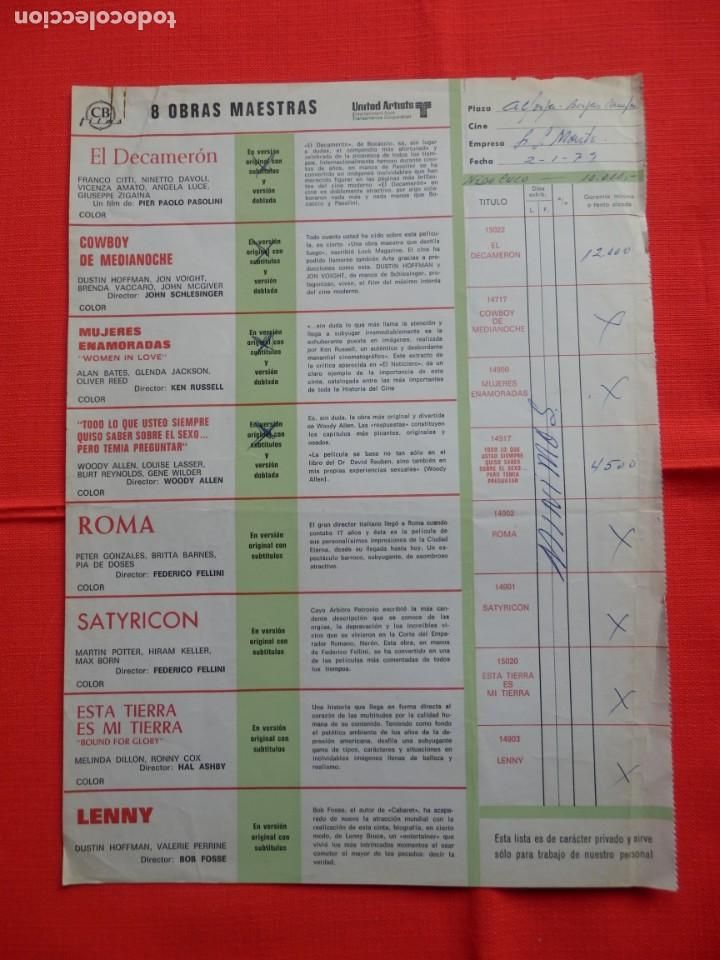 todocoleccion
CB
Films
8 OBRAS MAESTRAS
United Artists
Entertainment from
Transamerica Corporation
El Decamerón
FRANCO CITTI, NINETTO DAVOLI,
VICENZA AMATO, ANGELA LUCE,
GIUSEPPE ZIGAINA
Un film de: PIER PAOLO PASOLINI
COLOR
En versión
original con
subtítulos
y
versión
doblada
COWBOY
DE MEDIANOCHE
DUSTIN HOFFMAN, JON VOIGHT,
BRENDA VACCARO, JOHN McGIVER
Director: JOHN SCHLESINGER
COLOR
En versión
original con
subtítulos
y
versión
doblada
Todo cuanto usted ha oído sobre esta pelícu-
la, es cierto. «Una obra maestra que destila
fuego», escribió Look Magazine. El cine ha
podido llamarse también Arte gracias a pro-
ducciones como esta. DUSTIN HOFFMAN y
JON VOIGHT, de manos de Schlesinger, pro-
tagonizan, viven, el film del máximo interés
del cine moderno.
MUJERES
ENAMORADAS
"WOMEN IN LOVE"
ALAN BATES, GLENDA JACKSON,
OLIVER REED
Director: KEN RUSSELL
COLOR
En versión
original con
subtítulos
y
versión
doblada
«...sin duda lo que más llama la atención y
llega a subyugar irremediablemente es la
exhuberante puesta en imágenes, realizada
por Ken Russell, un auténtico y desbordante
manantial cinematográfico». Este extracto de
la crítica aparecida en «El Noticiero», da un
claro ejemplo de la importancia de esta
cinta, catalogada entre las más importantes
de toda la Historia del Cine
"TODO LO QUE USTED SIEMPRE
QUISO SABER SOBRE EL SEXO...
PERO TEMIA PREGUNTAR"
WOODY ALLEN, LOUISE LASSER,
BURT REYNOLDS, GENE WILDER
Director: WOODY ALLEN
COLOR
En versión
original con
subtítulos
y
versión
doblada
Es, sin duda, la obra más original y divertida
de Woody Allen. Las «respuestas» constituyen
los capítulos más picantes, originales y
osados.
«La película se basa no tan sólo en el
libro del Dr David Reuben, sino también en
mis propias experiencias sexuales» (Woody
Allen).
ROMA
PETER GONZALES, BRITTA BARNES,
PIA DE DOSES
Director: FEDERICO FELLINI
COLOR
En versión
original con
subtítulos
El gran director italiano llegó a Roma cuando
contaba 17 años y ésta es la película de
sus personalísimos impresiones de la Ciudad
Eterna, desde su llegada hasta hoy. Un es-
pectáculo barroco, subyugante, de asombroso
atractivo.
SATYRICON
MARTIN POTTER, HIRAM KELLER,
MAX BORN
Director: FEDERICO FELLINI
COLOR
En versión
original con
subtítulos
Cayo Arbitro Petronio escribió la más can-
dente descripción que se conoce de las
orgías, la depravación y los increíbles vi-
cios que se vivieron en la Corte del Empe-
rador Romano, Nerón. Esta obra, en manos
de Federico Fellini, se ha convertido en una
de las películas más comentadas de todos
los tiempos.
ESTA TIERRA
ES MI TIERRA
"BOUND FOR GLORY"
MELINDA DILLON, RONNY COX
Director: HAL ASHBY
COLOR
En versión
original con
subtítulos
Una historia que llega en forma directa al
corazón de las multitudes por la calidad huma-
na de su contenido. Teniendo como fondo
el patético ambiente de los años de la de-
presión americana, desfila una subyugante
gama de tipos, carácteres y situaciones en
inolvidables imágenes llenas de belleza y
realismo.
LENNY
DUSTIN HOFFMAN, VALERIE PERRINE
Director: BOB FOSSE
En versión
original con
subtítulos
Bob Fosse, el autor de «Cabaret», ha acapara-
do de nuevo la atracción mundial con la
realización de esta cinta, biografía, en cierto
modo, de Lenny Bruce, un «entertainer» que
vivió los más intrincados momentos al osar
cometer el mayor de los pecados: decir la
verdad.
Plaza
Cine
Empresa
Fecha 2-1-79
10.000,-
TITULO
Días
exhib.
L. F.
%
Garantía mínima
o tanto alzado
15022
EL
DECAMERON
12.000
14717
COWBOY
DE
MEDIANOCHE
X
14950
MUJERES
ENAMORADAS
X
14917
TODO LO QUE
USTED SIEMPRE
QUISO SABER
SOBRE EL SEXO...
PERO TEMIA
PREGUNTAR
4500
MINIMOS.
14902
ROMA
X
14901
SATYRICON
X
15020
ESTA TIERRA
ES
MI TIERRA
X
14903
LENNY
X
Esta lista es de carácter privado y sirve
sólo para trabajo de nuestro personal